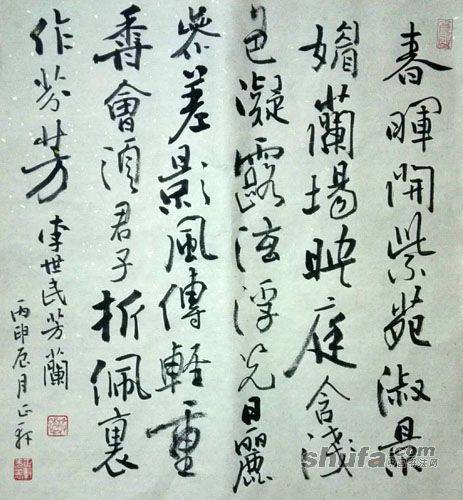 春暉開紫苑淑景
媚蘭場映庭含淺
色凝露泫浮光日麗
參差影風傳輕重
香會須君子折佩裏
作芬芳 李世民芳蘭
丙申辰月正
shufa.com